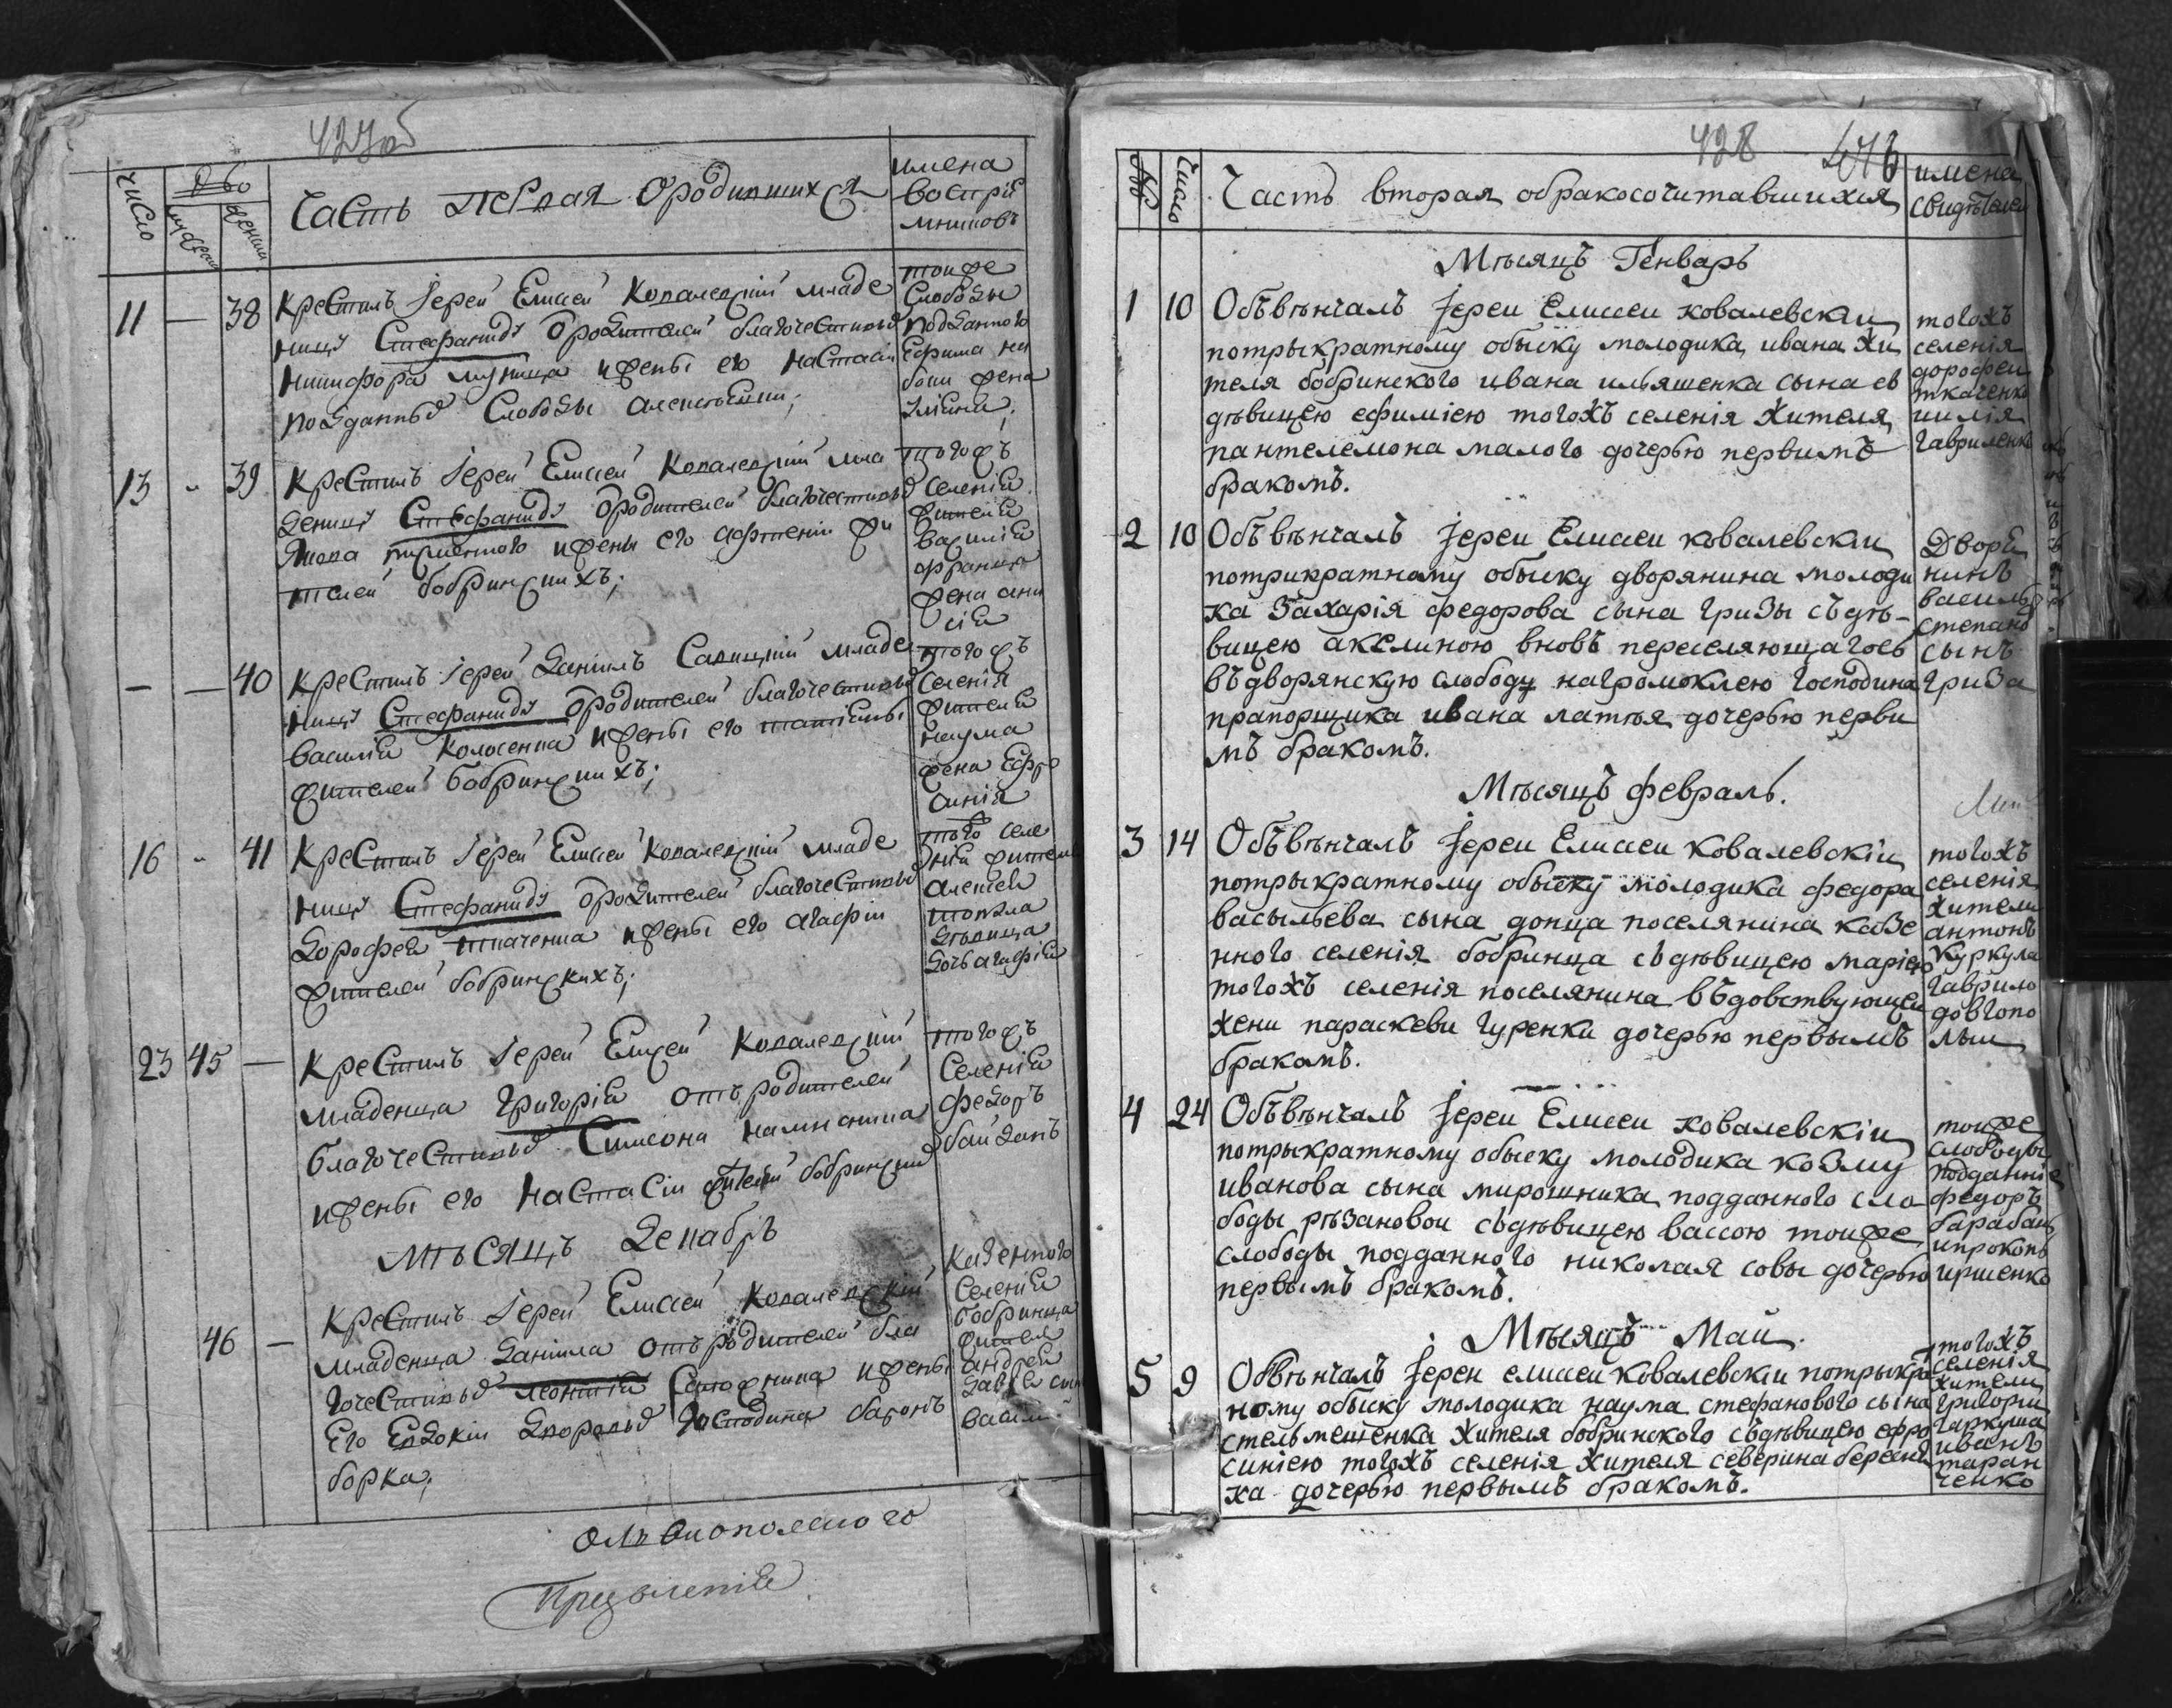 427об
число
мужеска
женска
Часть первая о родившихся
имена
воспрїе
мниковъ
11 — 38
Крестилъ Їерей Елисей Ковалевскїй младе
ницу Стефаниду ѿ родителей благочестивыхъ
Никифора и жены его Настасїи
подданныхъ слободы
тоиже
слободы
подданного
Ефима
жена
13 - 39
Крестилъ Їерей Елисей Ковалевскїй мла
деницу Стефаниду ѿ родителей благочестивыхъ
Якова и жены его жи
телей бобринскихъ;
тогожъ
селенїя
жителя
василїя
жена
— — 40
Крестилъ Їерей Данїилъ Савицкїй младе
ницу Стефаниду ѿ родителей благочестивыхъ
василїя Колосенка и жены его татїаны
жителей бобринскихъ;
тогожъ
селенїя
жителя
наума
жена Ефро
синїя
16 - 41
Крестилъ Їерей Елисей Ковалевскїй младе
ницу Стефаниду ѿ родителей благочестивыхъ
дорофея ткаченка и жены его агафїи
жителей бобринскихъ;
того селе
нїя жителя
алексея
дѣвица
дочь агафїя
23 45 —
Крестилъ Їерей Елисей Ковалевскїй
младенца Григорїя отъ родителей
благочестивыхъ Симеона
и жены его Настасїи жителей бобринскихъ
тогожъ
селенїя
федоръ
байданъ
мѣсяцъ Декабрь
46 —
Крестилъ Їерей Елисей Ковалевскїй
младенца Данїила отъ родителей бла
гочестивыхъ леонтїя и жены
его Евдокїи дворовыхъ господина
борка;
казенного
селенїя
бобринца
житель
андрей
василїй
Ольвиопольского
428
Число
Часть вторая обракосочитавшихся
имена
свидѣтелей
Мѣсяцъ Генварь
1 10 Объвѣнчалъ Їереи Елисеи ковалевскїи
потрыкратному обыску молодика ивана жи
теля бобринского ивана ильяшенка сына съ
дѣвицею ефимїею тогожъ селенїя жителя
пантелемона малого дочерью первимъ
бракомъ.
тогожъ
селенїя
дорофеи
ткаченко
иилїя
гавриленко
2 10 Объвѣнчалъ Їереи Елисеи ковалевскїи
потрикратному обыску дворянина молоди
ка захарїя федорова сына гризы съдѣ-
вицею акелиною вновъ переселяющагось
въдворянскую слободу нагромоклею господина
прапорщика ивана латыя дочерью перви
мъ бракомъ.
Дворя
нинъ
василь
степанов
сынъ
гриза
Мѣсяцъ февраль.
3 14 Объвѣнчалъ Їереи Елисеи ковалевскїи
потрыкратному обыску молодика федора
васыльева сына донца поселянина казе
нного селенїя бобринца съдѣвицею марїею
тогожъ селенїя поселянина въдовствующеи
жени параскеви гуренки дочерью первымъ
бракомъ.
тогожъ
селенїя
жители
антонъ
куркула
гаврило
довгопо
лыи
4 24 Объвѣнчалъ Їереи Елисеи ковалевскїи
потрыкратному обыску молодика козму
иванова сына мирошника подданного сло
боды рѣзановои съдѣвицею вассою тоиже
слободы подданного николая совы дочерью
первымъ бракомъ.
тоиже
слободы
подданнїе
федоръ
барабашъ
ипрокопъ
иршенко
Мѣсяцъ Маи.
5 9 Обвѣнчалъ Їереи елисеи ковалевскїи потрыкра
ному обыску молодика наума стефанового сына
стельмешенка жителя бобринского съдѣвицею ефро
синїею тогожъ селенїя жителя северина березня
ка дочерью первымъ бракомъ.
тогожъ
селенїя
жители
григории
гаркуша
иванъ
таран
ченко